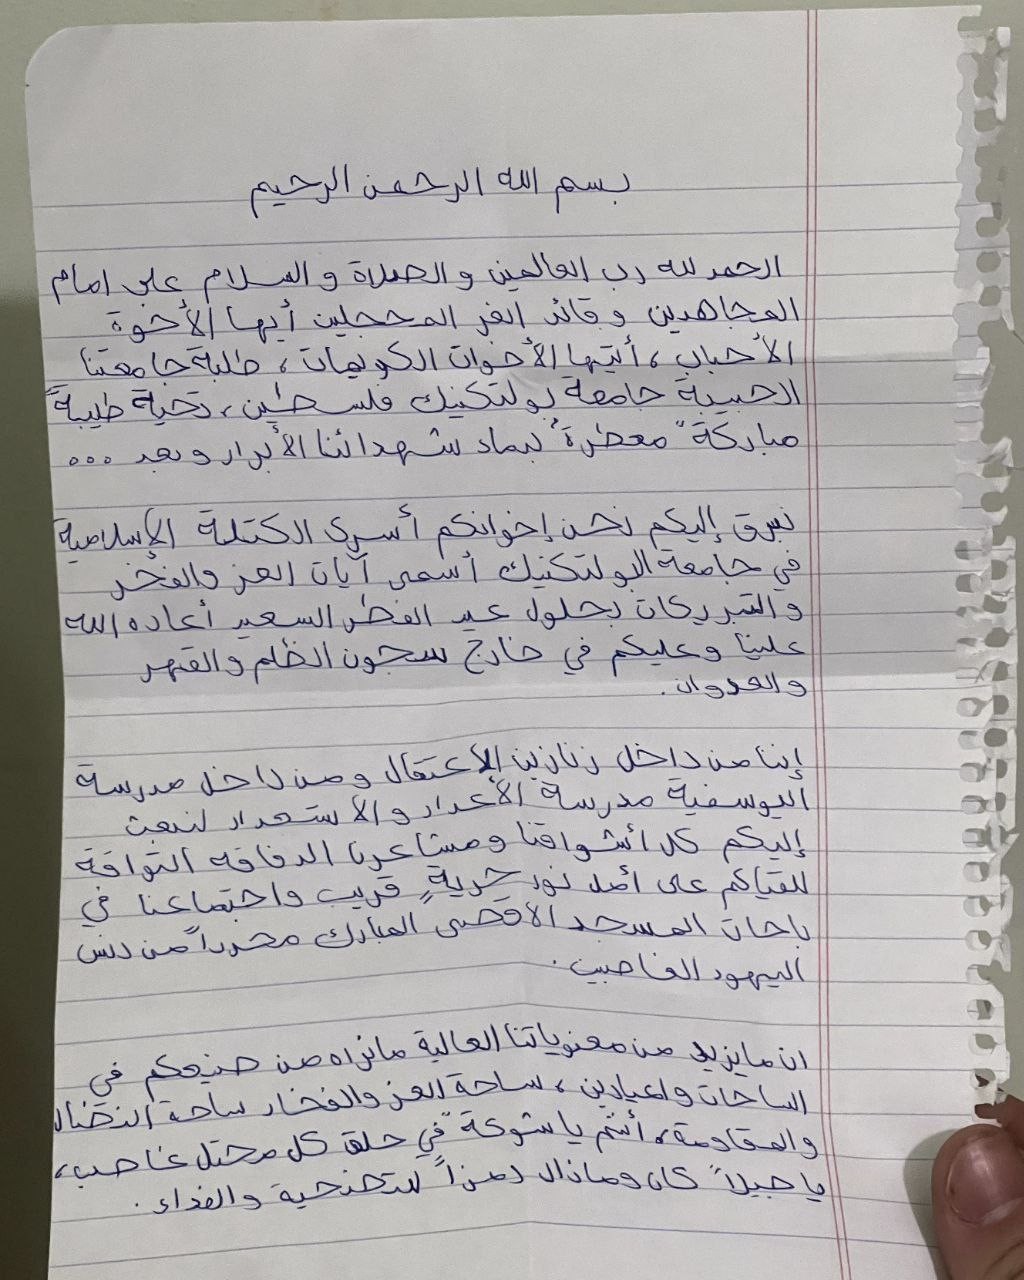 بسم الله الرحمن الرحيم
الحمد لله رب العالمين والصلاة والسلام على امام
المجاهدين وقائد الغر المحجلين أيها الأخوة
الأحباب، أيتها الأخوات الكريمات، طلبة جامعتنا
الحبيبة جامعة بولتكنيك فلسطين، تحية طيبةً
مباركةً معطرةً بدماء شهدائنا الأبرار وبعد ...
نبرق إليكم نحن إخوانكم أسرى الكتلة الإسلامية
في جامعة البولتكنيك أسمى آيات العز والفخر
والتبريكات بحلول عيد الفطر السعيد أعاده الله
علينا وعليكم في خارج سجون الظلم والقهر
والعدوان.
إننا من داخل زنازين الأعتقال ومن داخل مدرسة
اليوسفية مدرسة الأعداد والاستعداد لنبعث
إليكم كل أشواقنا ومشاعرنا الدفاقه التواقة
للقياكم على أمل نور حريةٍ قريب واجتماعنا في
باحات المسجد الاقصى المبارك محرراً من دنس
اليهود الغاصبين.
ان ما يزيد من معنوياتنا العالية ما نراه من صنيعكم في
الساحات والميادين، ساحة العز والفخار ساحة النضال
والمقاومة، أنتم يا شوكةً في حلق كل محتل غاصب،
يا جيلاً كان ومازال رمزاً للتضحية والفداء.